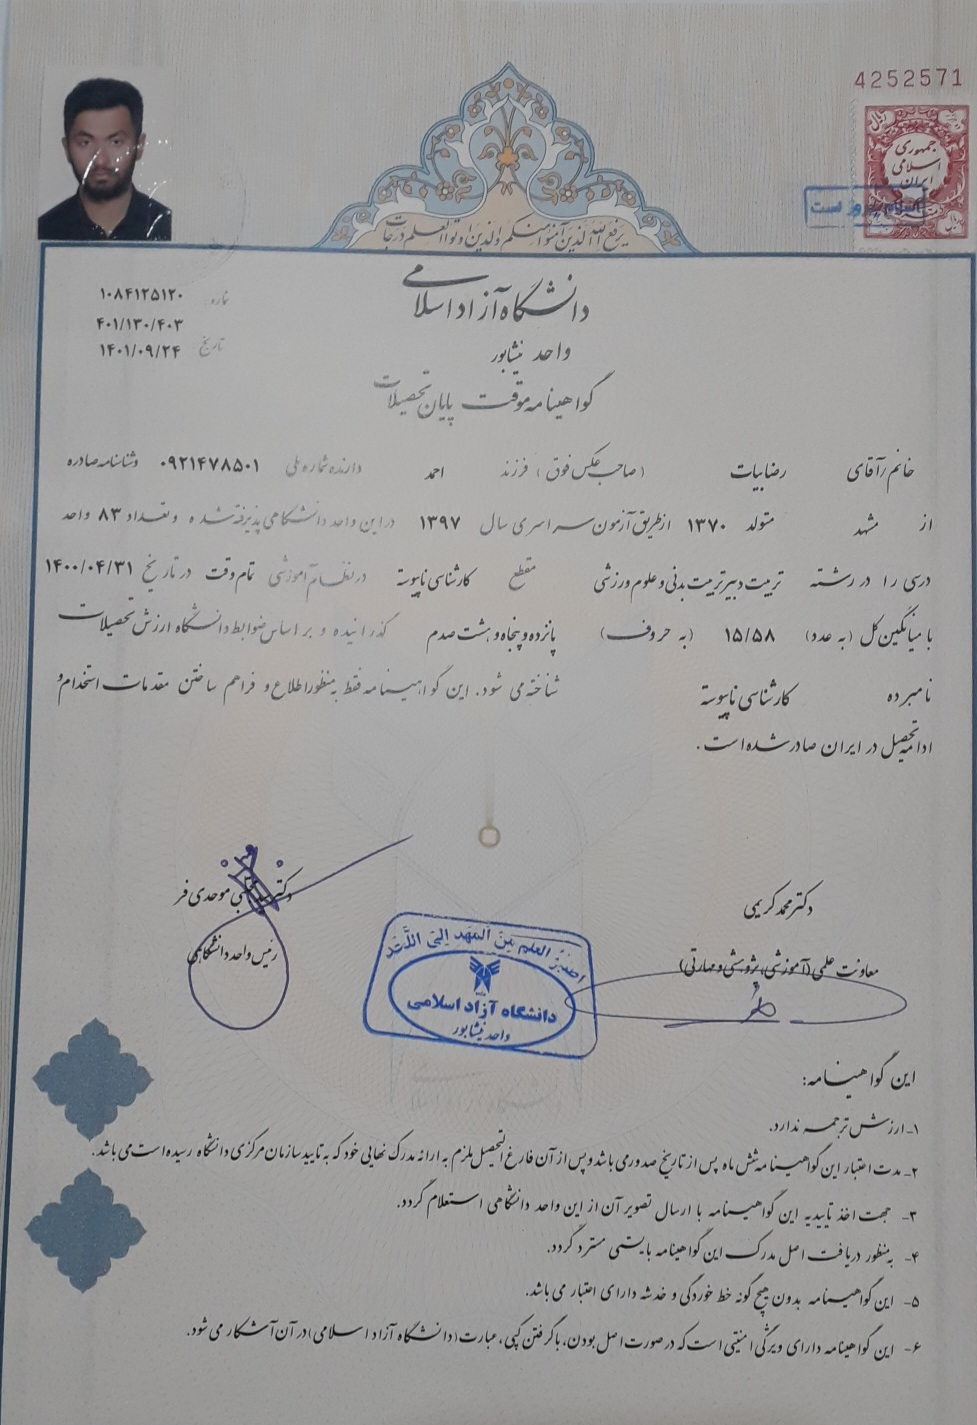 4252571
جمهوری
اسلامی
ایران
ریال
یرفع الله الذین آمنوا منکم والذین اوتوا العلم درجات
دانشگاه آزاد اسلامی
واحد نیشابور
گواهینامه موقت پایان تحصیلات
شماره ۱۰۸۴۱۲۵۱۲۰
۴۰۱/۱۳۰/۴۰۳
تاریخ ۱۴۰۱/۰۹/۲۴
خانم/آقای رضا بیات (صاحب عکس فوق) فرزند احمد دارنده شماره ملی ۰۹۲۱۴۷۸۵۰۱ و شناسنامه صادره
از مشهد متولد ۱۳۷۰ از طریق آزمون سراسری سال ۱۳۹۷ در این واحد دانشگاهی پذیرفته شده و تعداد ۸۳ واحد
درسی را در رشته تربیت دبیر تربیت بدنی و علوم ورزشی مقطع کارشناسی ناپیوسته در نظام آموزشی تمام وقت در تاریخ ۱۴۰۰/۰۴/۳۱
با میانگین کل (به عدد) ۱۵/۵۸ (به حروف) پانزده و پنجاه و هشت صدم گذرانیده و بر اساس ضوابط دانشگاه ارزش تحصیلات
نامبرده کارشناسی ناپیوسته شناخته می شود. این گواهینامه فقط به منظور اطلاع و فراهم ساختن مقدمات استخدام و
ادامه تحصیل در ایران صادر شده است.
دکتر محمد کریمی
معاونت علمی (آموزشی، پژوهشی و مهارتی)
دکتر موحدی فر
رئیس واحد دانشگاهی
العلم من المهد الی اللحد
دانشگاه آزاد اسلامی
واحد نیشابور
این گواهینامه:
۱- ارزش ترجمه ندارد.
۲- مدت اعتبار این گواهینامه شش ماه پس از تاریخ صدور می باشد و پس از آن فارغ التحصیل ملزم به ارائه مدرک نهایی خود که به تایید سازمان مرکزی دانشگاه رسیده است می باشد.
۳- جهت اخذ تاییدیه این گواهینامه با ارسال تصویر آن از این واحد دانشگاهی استعلام گردد.
۴- به منظور دریافت اصل مدرک این گواهینامه بایستی مسترد گردد.
۵- این گواهینامه بدون هیچ گونه خط خوردگی و خدشه دارای اعتبار می باشد.
۶- این گواهینامه دارای ویژگی امنیتی است که در صورت اصل بودن، با گرفتن کپی، عبارت (دانشگاه آزاد اسلامی) در آن آشکار می شود.